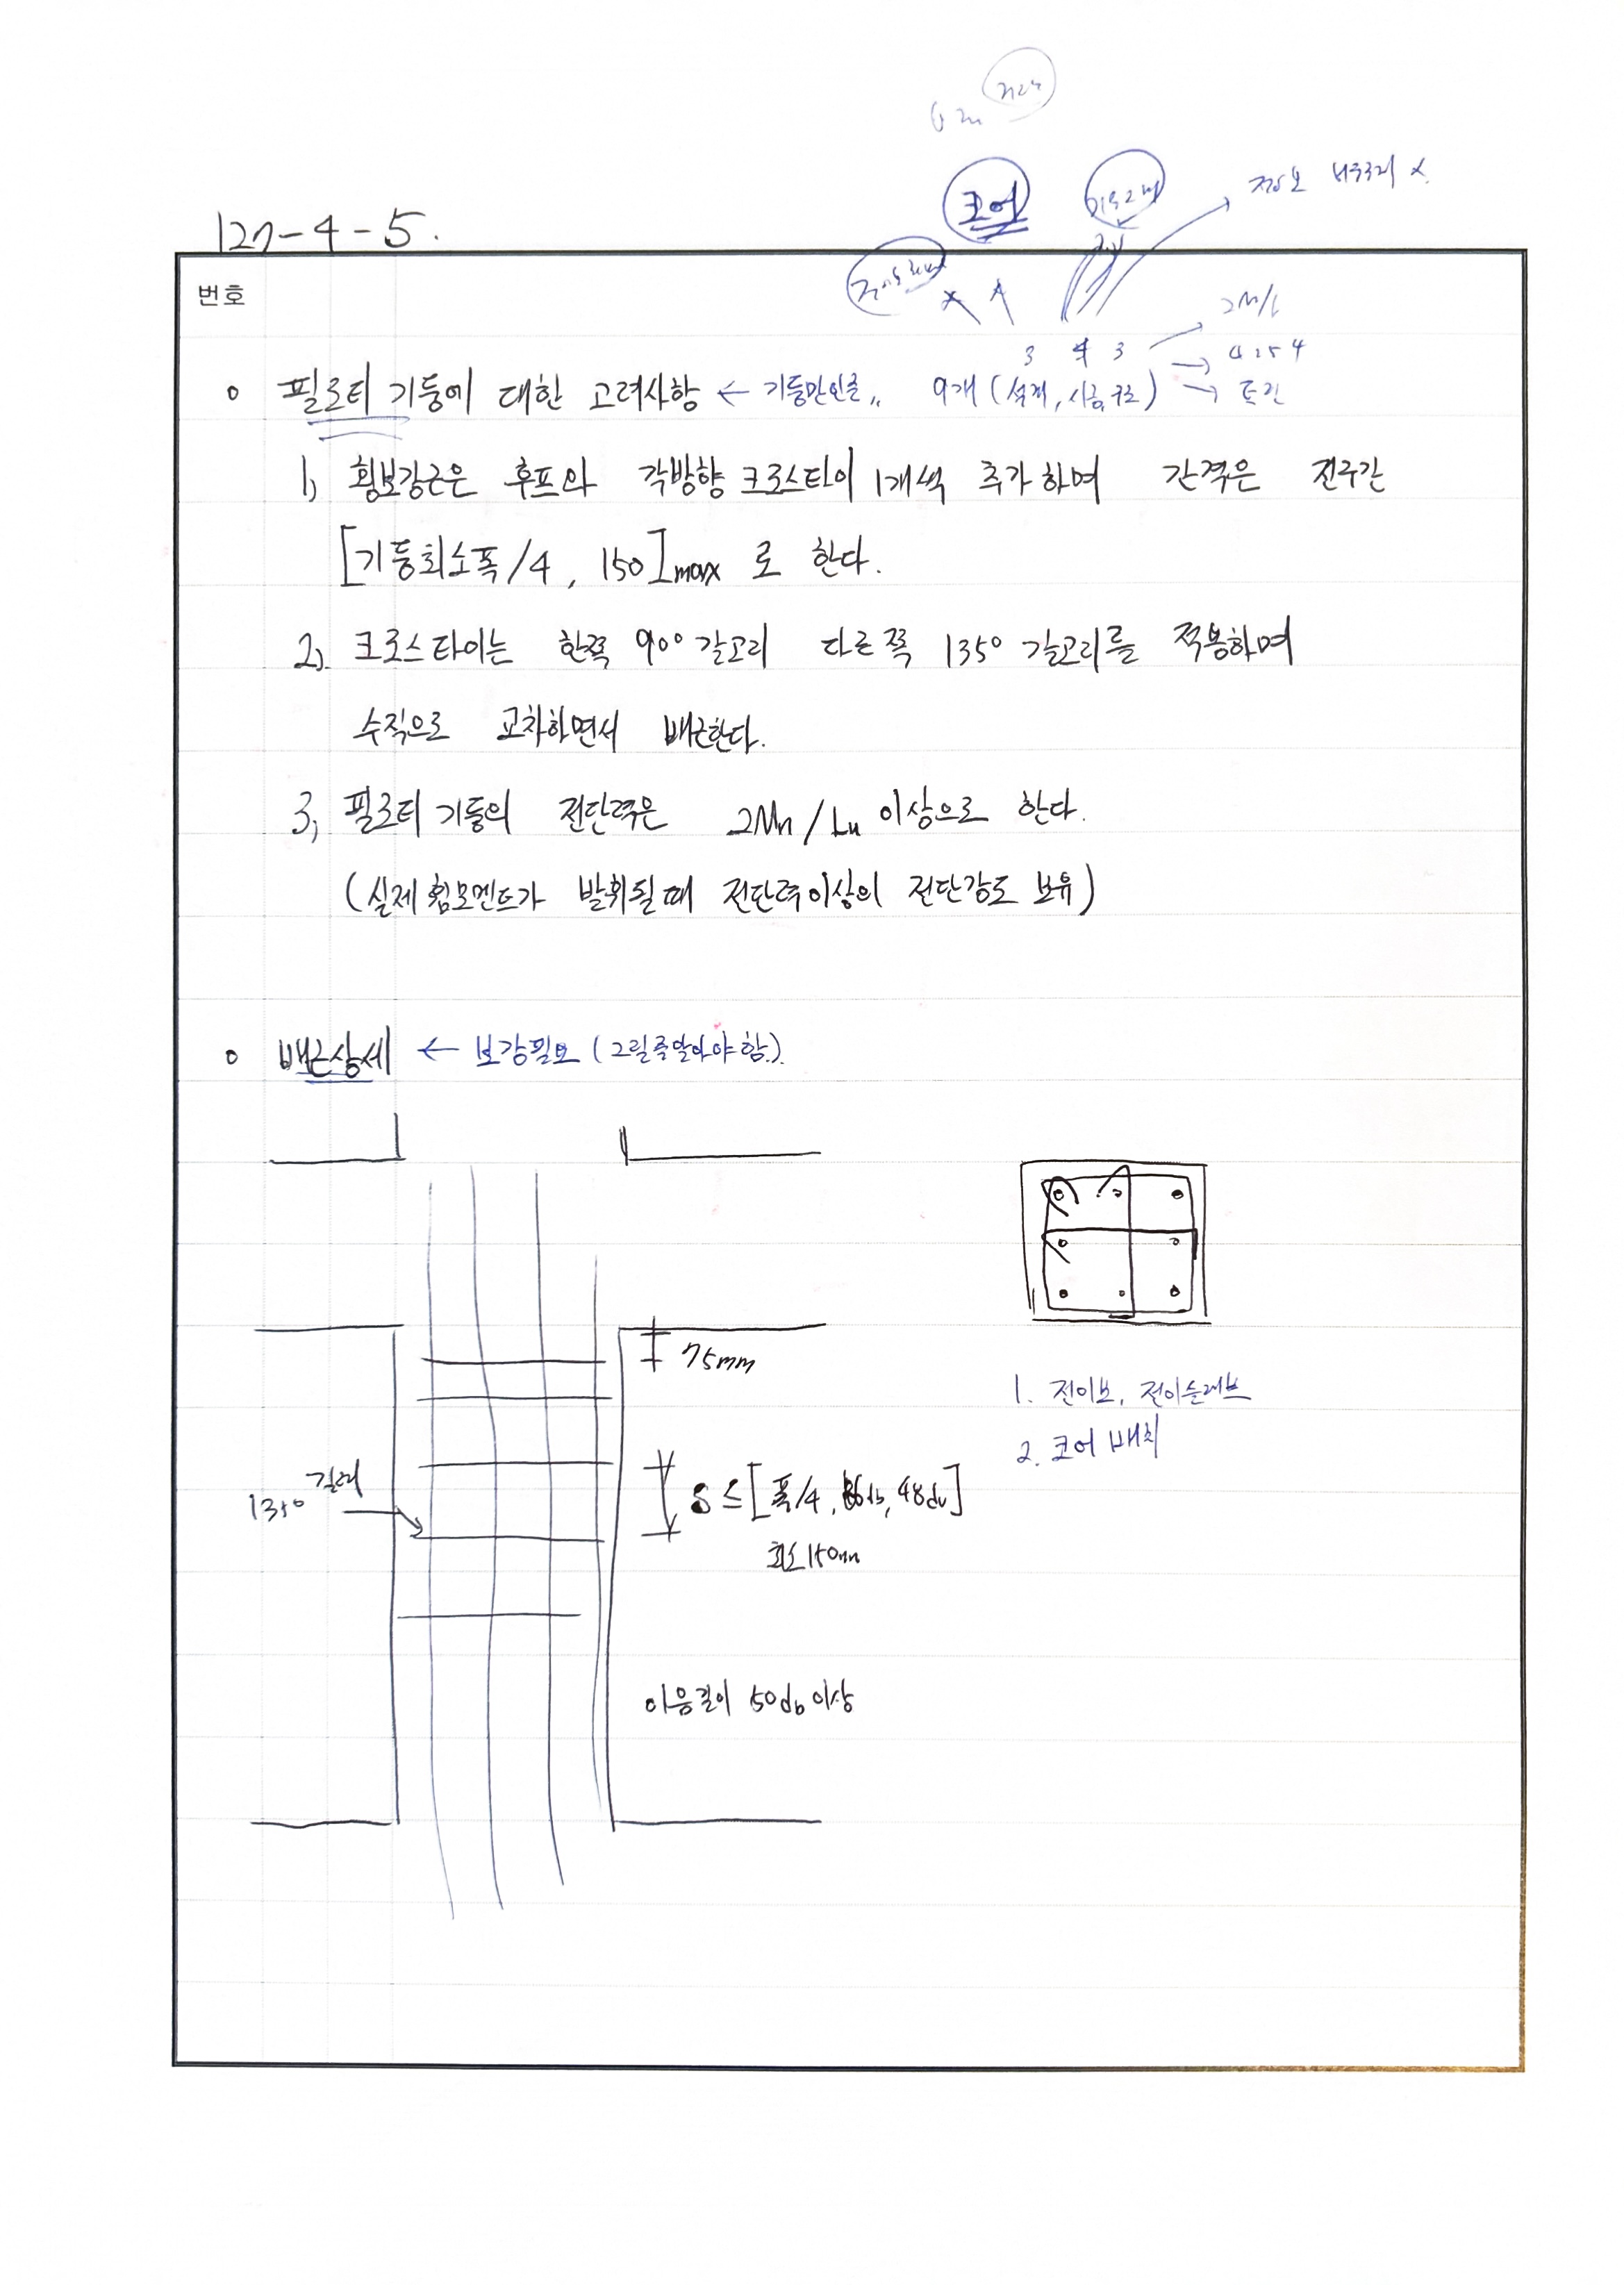 코어
127-4-5.
번호
2M/L
3 4 3
o 필로티 기둥에 대한 고려사항 ← 기둥만인을,, 9개 (설계, 시공, 구조)
1) 횡보강근은 후프와 각방향 크로스타이 1개씩 추가하며 간격은 전구간
[기둥최소폭/4, 150]max 로 한다.
2). 크로스타이는 한쪽 90° 갈고리 다른쪽 135° 갈고리를 적용하며
수직으로 교차하면서 배근한다.
3, 필로티 기둥의 전단력은 2Mn/Lu 이상으로 한다.
(실제 휨모멘트가 발휘될때 전단력이상의 전단강도 보유)
o 배근상세 ← 보강필요 (그릴줄알아야함.)
75mm
1. 전이보, 전이슬래브
2. 코어 배치
135°
S ≤ [폭/4, db, 48db]
최소150mm
이음길이 50db이상